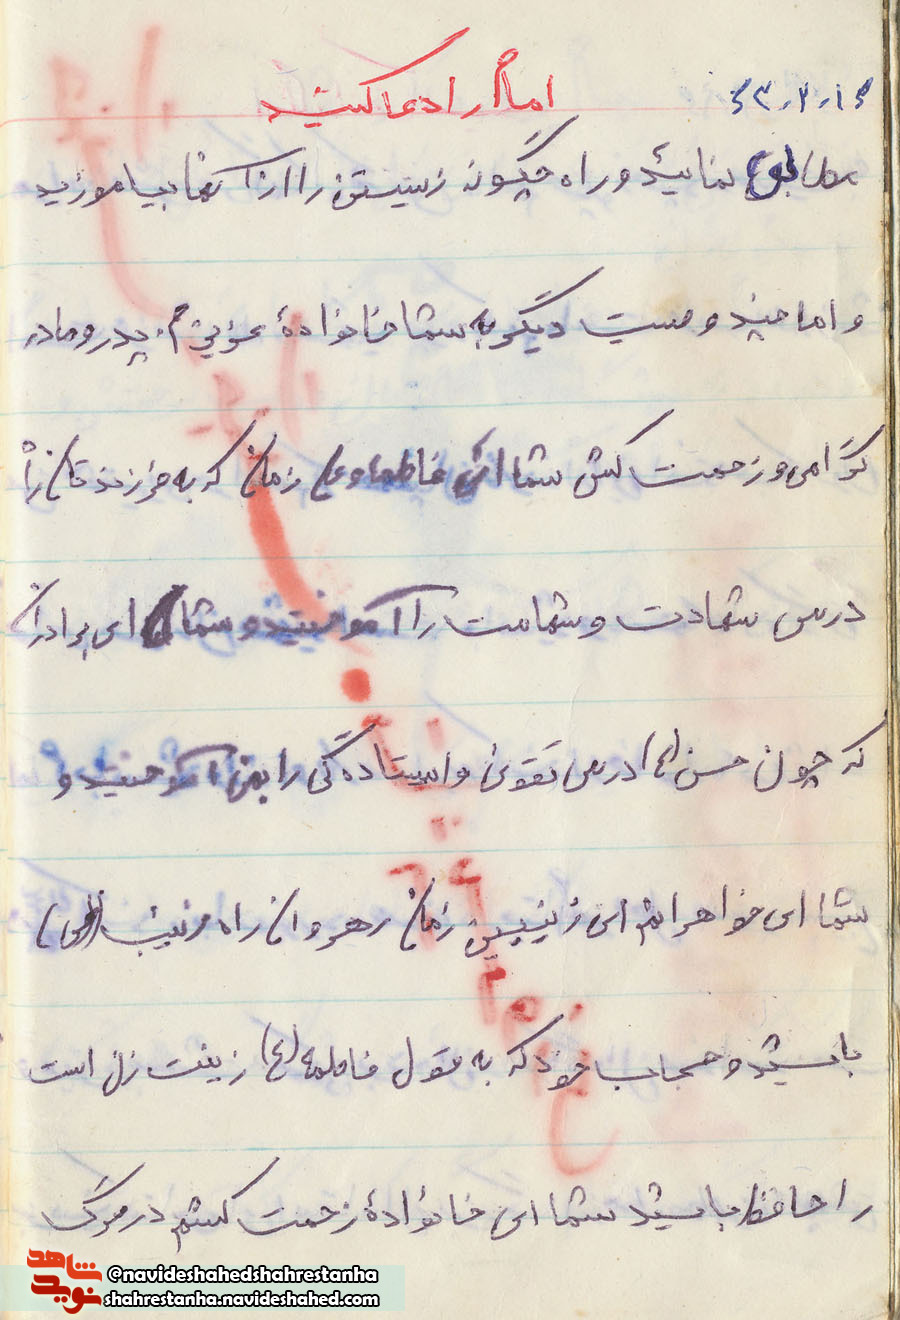 امام را دعا کنید
۶۳.۲.۱۶
مطالعه نمائید و راه چگونه زیستن را از آنها بیاموزید
و اما چند وصیت دیگر به شما خانوادهٔ عزیزم. پدر و مادر
گرامی و زحمت کش شما ای فاطمه و علی زمان که به فرزندتان
درس شهادت و شهامت را آموختید و شما ای برادران
که چون حسن (ع) درس تقوی و ایستادگی را بمن آموختید و
شما ای خواهرانم ای زینبین زمان رهروان راه زینب (س)
باشید و حجاب خود که به قول فاطمه (ع) زینت زن است
را حافظ باشید شما ای خانوادهٔ زحمت کشم در مرگ
شاهد
نوید
@navideshahedshahrestanha
shahrestanha.navideshahed.com